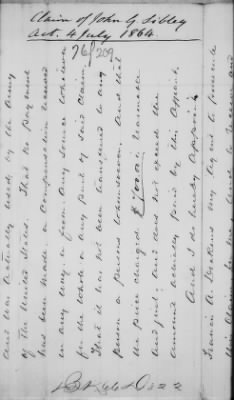 Claim of John G. Sibley
Act. 4 July 1864.
76/209
and was actually used by the army
of the United States. That no payment
has been made or compensation received
in any way or from any source whatever
for the whole or any part of said claim
That it has not been transferred to any
person or persons whomsoever. And that
the price charged is
and just, and does not exceed the
amount actually paid by this Affiant.
And I do hereby appoint
Francis A. my Agent to prosecute
this claim and to receive and